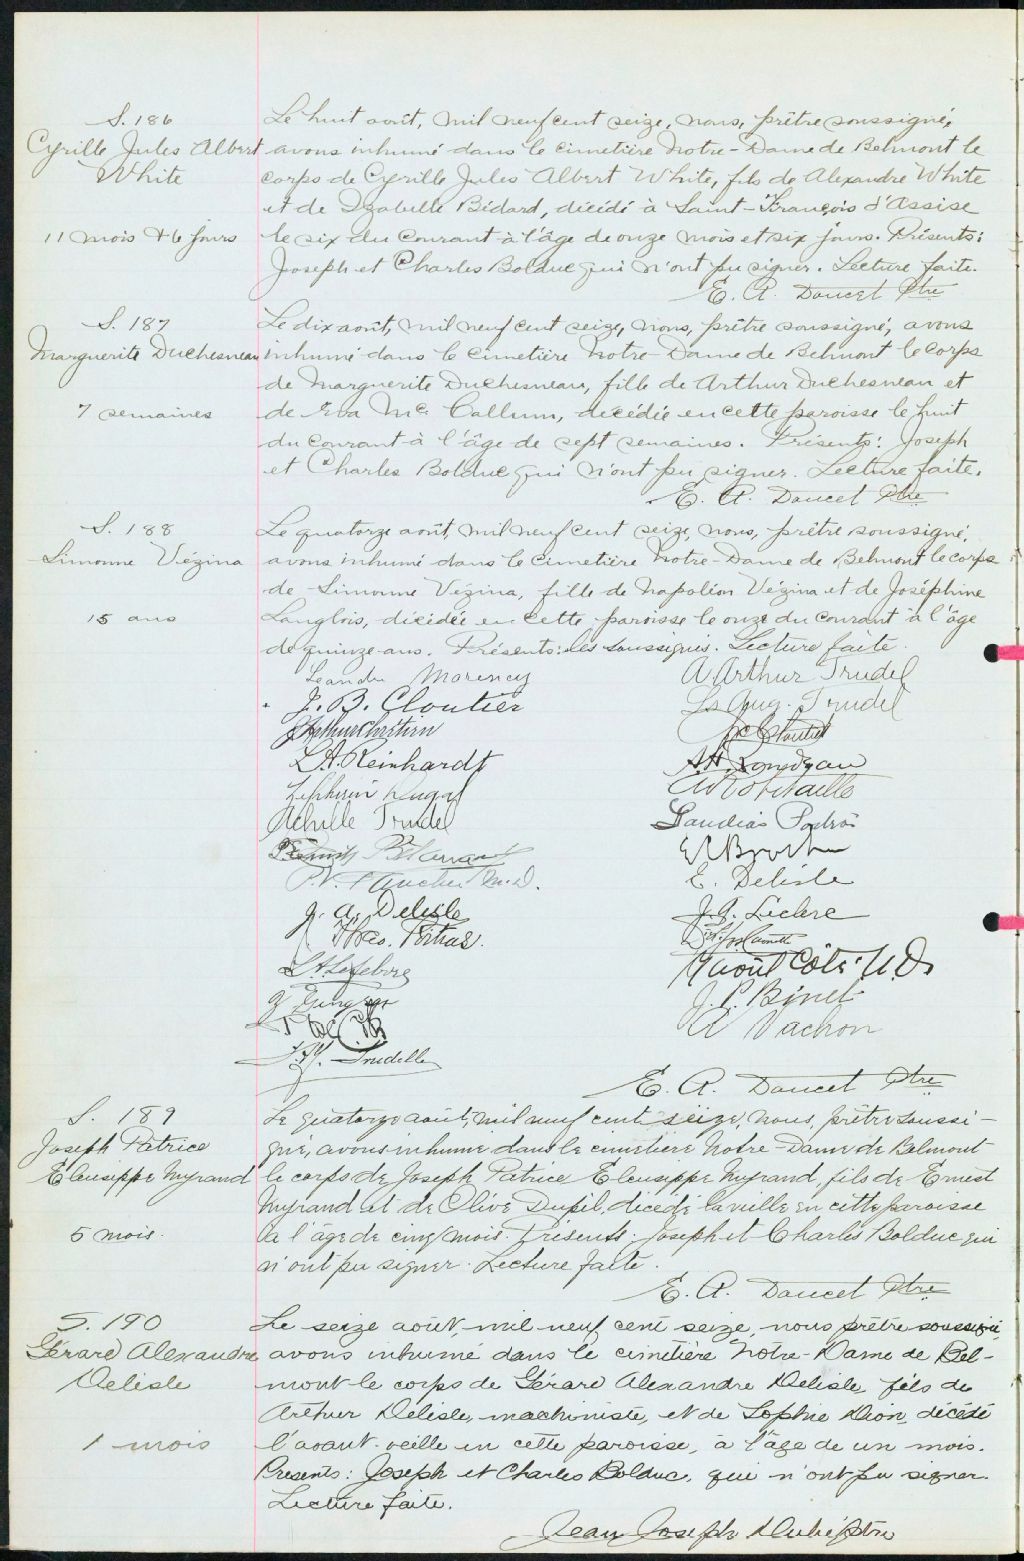 S. 186
Cyrille Jules Albert
White
11 mois & 6 jours
Le huit août, mil neuf cent seize, nous, prêtre soussigné,
avons inhumé dans le cimetière Notre-Dame de Belmont le
corps de Cyrille Jules Albert White, fils de Alexandre White
et de Izabelle Bédard, décédé à Saint-François d'Assise
le six du courant à l'âge de onze mois et six jours. Présents:
Joseph et Charles Bolduc qui n'ont pu signer. Lecture faite.
E. A. Doucet Ptre
S. 187
Marguerite Duchesneau
7 semaines
Le dix août, mil neuf cent seize, nous, prêtre soussigné, avons
inhumé dans le cimetière Notre-Dame de Belmont le corps
de Marguerite Duchesneau, fille de Arthur Duchesneau et
de Eva Mc Callum, décédée en cette paroisse le huit
du courant à l'âge de sept semaines. Présents: Joseph
et Charles Bolduc qui n'ont pu signer. Lecture faite.
E. A. Doucet Ptre
S. 188
Simonne Vézina
15 ans
Le quatorze août, mil neuf cent seize, nous, prêtre soussigné,
avons inhumé dans le cimetière Notre-Dame de Belmont le corps
de Simonne Vézina, fille de Napoléon Vézina et de Joséphine
Langlois, décédée en cette paroisse le onze du courant à l'âge
de quinze ans. Présents: les soussignés. Lecture faite.
A Arthur Trudel
J. B. Cloutier
Ls Aug. Trudel
Arthur Chrétien
L.A. Reinhardt
Achille Trudel
E. Delisle
J. A. Delisle
J. A. Leclerc
L.A. Lefebvre
Raoul Côté
J. P. Binet
A Vachon
Trudelle
E. A. Doucet Ptre
S. 189
Joseph Patrice
Eleusippe Myrand
5 mois.
Le quatorze août, mil neuf cent seize, nous, prêtre soussi-
gné, avons inhumé dans le cimetière Notre-Dame de Belmont
le corps de Joseph Patrice Eleusippe Myrand, fils de Ernest
Myrand et de Olive Dupil, décédé la veille en cette paroisse
à l'âge de cinq mois. Présents: Joseph et Charles Bolduc qui
n'ont pu signer. Lecture faite.
E. A. Doucet Ptre
S. 190
Gérard Alexandre
Delisle
1 mois
Le seize août, mil neuf cent seize, nous prêtre soussigné,
avons inhumé dans le cimetière Notre-Dame de Bel-
mont le corps de Gérard Alexandre Delisle, fils de
Arthur Delisle, machiniste, et de Sophie Dion, décédé
l'avant-veille en cette paroisse, à l'âge de un mois.
Présents: Joseph et Charles Bolduc, qui n'ont pu signer.
Lecture faite.
Jean Joseph